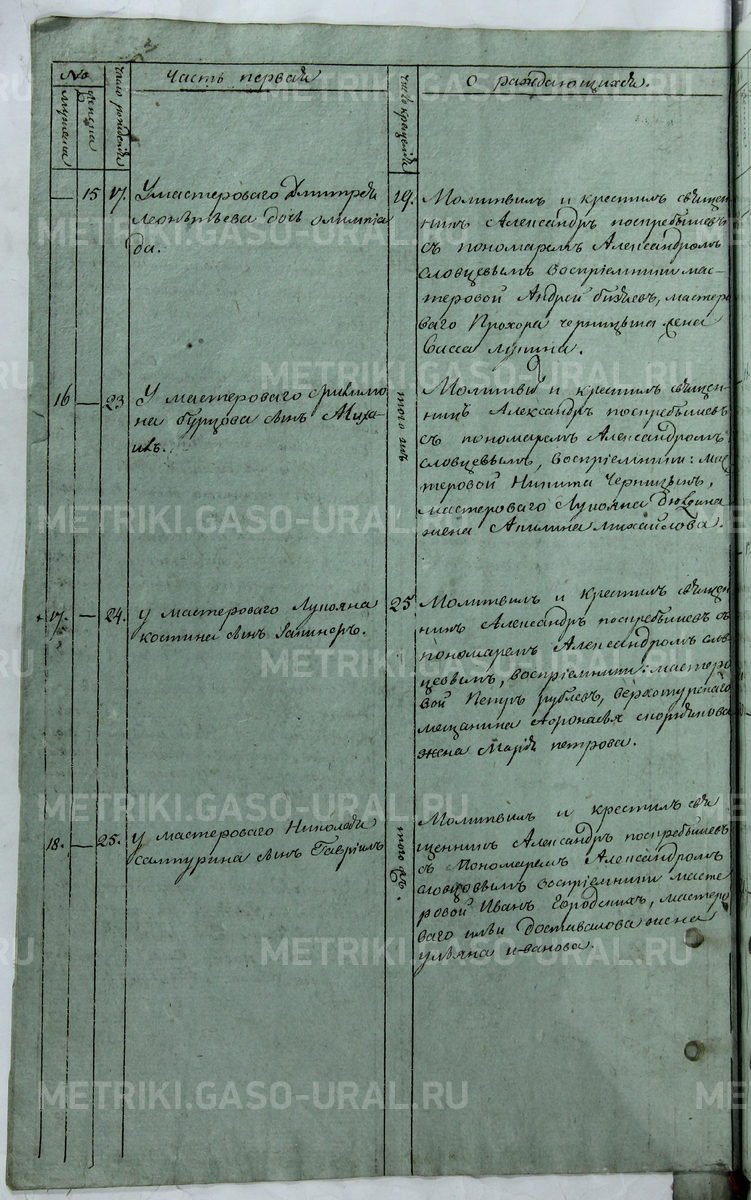 №
мужеска
женска
число рождения
Часть первая
число крещения
О раждающихся.
— 15 17. У мастероваго Дмитрея
Леонтьева дочь олимпiа
да.
19. Молитвилъ и крестилъ священ
никъ Александръ поспребышевъ
съ пономаремъ Александромъ
словцевымъ воспрiемники мас-
теровой Андрей мастеро
ваго Прохора черницына жена
Васса лупина.
16 — 23 У мастероваго Филимо
на бурцова сынъ Миха-
илъ.
того жъ
Молитвил и крестилъ священ-
никъ Александръ поспребышевъ
съ пономаремъ Александромъ
словцевымъ, воспрiемники: мас
теровой Никита Черницынъ,
мастероваго Лукояна
жена Акилина михайлова.
17. — 24. у мастероваго Лукояна
костина сынъ Галинеръ.
25 Молитвилъ и крестилъ священ
никъ Александръ поспребышевъ съ
пономаремъ Александромъ слов
цевымъ, воспрiемники: мастеро
вой Петръ рублевъ, верхотурскаго
мещанина Афонасья
жена Марья петрова.
18. — 25. у мастероваго Николая
саптурина сынъ Гаврiилъ
того жъ.
Молитвилъ и крестилъ свя
щенникъ Александръ поспребышевъ
съ Пономаремъ Александромъ
словцовымъ воспрiемники масте
ровой Иванъ Городскихъ, мастеро
ваго ильи Доставалова жена
ульяна иванова.
METRIKI.GASO-URAL.RU